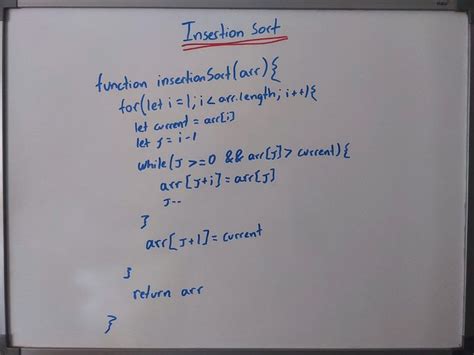 Insertion Sort
function insertionSort(arr){
for(let i=1; i< arr.length; i++){
let current = arr[i]
let j = i-1
while(j >=0 && arr[j]> current){
arr[j+i]=arr[j]
j--
}
arr[j+1]=current
}
return arr
}